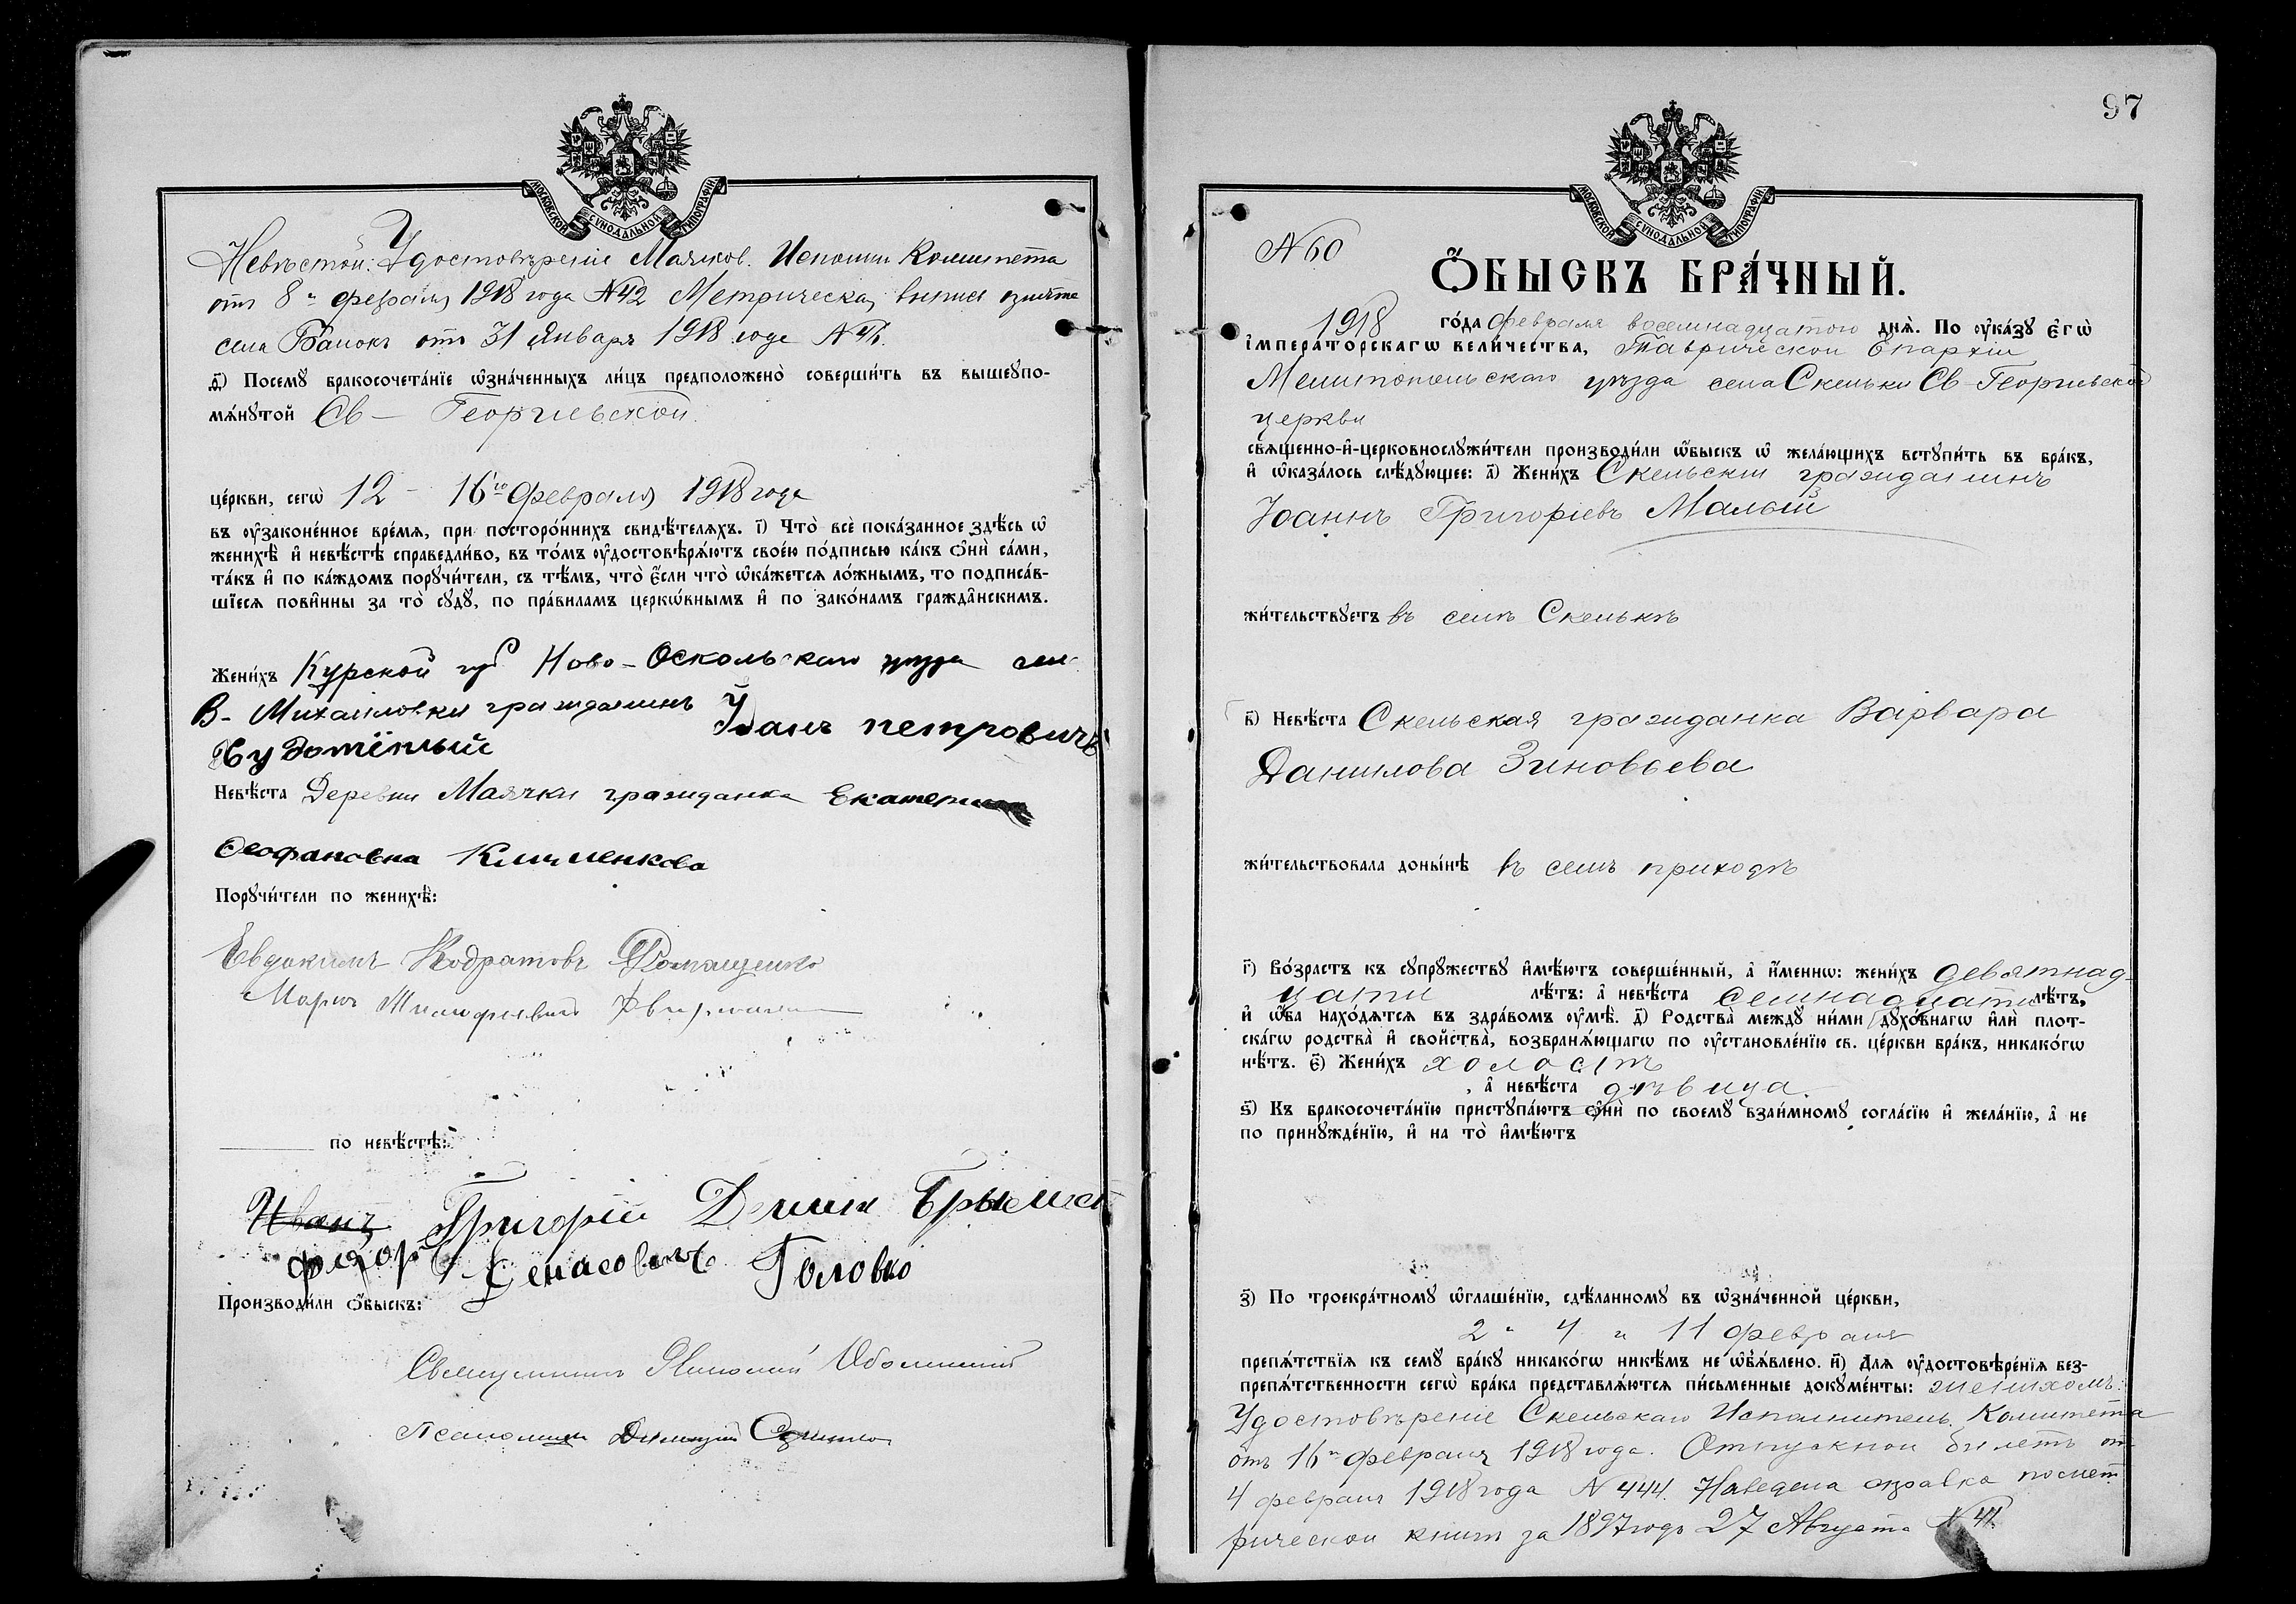 МОСКОВСКОЙ СѴНОДАЛЬНОЙ ТИПОГРАФІИ.
Невѣстой: Удостовѣреніе Маячков. Исполни Комитета
отъ 8 февраля 1918 года №42 Метрическая выпись
села Балокъ отъ 31 Января 1918 года
д҃) Посемꙋ бракосочета́нїе ѡ҆зна́ченныхъ ли́цъ предположено̀ соверши́ть въ вышеꙋпо-
мѧ́нꙋтой Св – Георгіевской.
це́ркви, сегѡ̀ 12 – 16го февраля 1918 года
въ ᲂу҆зако́ненное вре́мѧ, при посторо́ннихъ свидѣ́телѧхъ. і҃) Что̀ всѐ пока́занное здѣ́сь ѡ҆
женихѣ̀ и҆ невѣ́стѣ справедли́во, въ то́мъ ᲂу҆достовѣрѧ́ютъ свое́ю по́дписью ка́къ ѻ҆нѝ са́ми,
та́къ и҆ по ка́ждомъ порꙋчи́тели, съ тѣ́мъ, что̀ є҆́сли что̀ ѡ҆ка́жетсѧ ло́жнымъ, то подписа́в-
шїесѧ пови́нны за то̀ сꙋдꙋ̀, по пра́виламъ церко́внымъ и҆ по зако́намъ гражда́нскимъ.
Жени́хъ Курской губ Ново-Оскольскаго уѣзда
В- Михаиловки гражданинъ Иванъ петровичъ
Невѣ́ста Деревни Маячки гражданка Екатерина
Феофановна Клименкова
Порꙋчи́тели по женихѣ̀:
Евдокимъ Кодратовъ
по невѣ́стѣ:
Иванъ Григорій
Головко
Производи́ли ѻ҆́быскъ:
Священникъ Николай
Псаломщикъ
97
МОСКОВСКОЙ СѴНОДАЛЬНОЙ ТИПОГРАФІИ.
№ 60
Ѻ҆́БЫСКЪ БРА́ЧНЫЙ.
1918 го́да февраля восемнадцатого днѧ̀. По ᲂу҆ка́зꙋ є҆гѡ̀
и҆мпера́торскагѡ вели́чества, Таврической Епархіи
Мелитопольскаго уѣзда села Скельки Св-Георгіевской
церкви
свѧще́нно-и҆-церковнослꙋжи́тели производи́ли ѡ҆́быскъ ѡ҆ жела́ющихъ встꙋпи́ть въ бра́къ,
и҆ ѡ҆каза́лось слѣ́дꙋющее: а҃) Жени́хъ Скельскій гражданинъ
Іоаннъ Григоріевъ Малый
жи́тельствꙋетъ въ селѣ Скелькѣ
в҃) Невѣ́ста Скельская гражданка Варвара
Данилова Зиновьева
жи́тельствовала доны́нѣ въ семъ приходѣ
г҃) Во́зрастъ къ сꙋпрꙋ́жествꙋ и҆мѣ́ютъ соверше́нный, а҆ и҆́меннѡ: жени́хъ девятнад-
цати лѣ́тъ: а҆ невѣ́ста семнадцати лѣ́тъ,
и҆ ѻ҆́ба нахо́дѧтсѧ въ здра́вомъ ᲂу҆мѣ̀. д҃) Родства̀ междꙋ̀ ни́ми дꙋхо́внагѡ и҆лѝ плот-
ска́гѡ родства̀ и҆ свойства̀, возбранѧ́ющагѡ по ᲂу҆становле́нїю св. це́ркви бра́къ, никако́гѡ
нѣ́тъ. є҃) Жени́хъ холостъ
, а҆ невѣ́ста дѣвица.
ѕ҃) Къ бракосочета́нїю пристꙋпа́ютъ ѻ҆нѝ по своемꙋ̀ взаи́мномꙋ согла́сїю и҆ жела́нїю, а҆ не
по принꙋжде́нїю, и҆ на то̀ и҆мѣ́ютъ
з҃) По троекра́тномꙋ ѡ҆глаше́нїю, сдѣ́ланномꙋ въ ѡ҆зна́ченной це́ркви,
2 " 4 и 11 февраля
препѧ́тствїѧ къ семꙋ̀ бра́кꙋ никако́гѡ никѣ́мъ не ѡ҆б̾ѧ́влено. и҃) Длѧ ᲂу҆достовѣре́нїѧ без-
препѧ́тственности сегѡ̀ бра́ка представлѧ́ютсѧ пи́сьменные докꙋме́нты: женихомъ:
Удостовѣреніе Скельскаго Исполнитель. Комитета
отъ 16 февраля 1918 года. Отпускной билетъ от
4 февраля 1918 года № 444. Наведена справка помет
рической книгѣ за 1897 годъ 27 Августа № 41